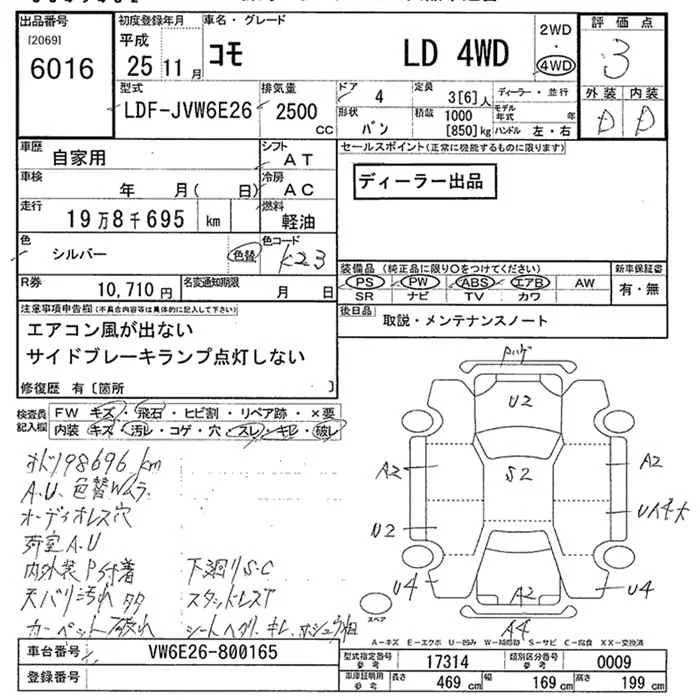 出品番号
[2069]
6016
初度登録年月
平成
25 11月
車名・グレード
コモ LD 4WD
2WD
・
4WD
評価点
3
外装 内装
D D
型式
LDF-JVW6E26
排気量
2500 CC
ドア 4
形状 バン
定員 3[6]人
積載 1000 [850]kg
ディーラー・並行
モデル年式 年
ハンドル 左・右
車歴
自家用
シフト AT
車検
年 月( 日)
冷房 AC
走行
19万8千695 km
燃料 軽油
色 シルバー 色替
色コード K23
R券 10,710円
名変通知期限 月 日
セールスポイント(正常に機能するものに限ります)
ディーラー出品
装備品(純正品に限り○をつけてください)
PS PW ABS エアB AW
SR ナビ TV カワ
新車保証書
有・無
後日品 取説・メンテナンスノート
注意事項申告欄(不具合内容等は具体的に記入して下さい)
エアコン風が出ない
サイドブレーキランプ点灯しない
修復歴 有〔箇所 〕
検査員記入欄
FW キズ・飛石・ヒビ割・リペア跡・×要
内装 キズ・汚レ・コゲ・穴・スレ・キレ・破レ
198696 km
A.U、色替Wムラ
オーディオレス穴
荷室A.U
内外装P付着 下廻りS・C
天バリ汚れタタ スタッドレスT
カーペット破れ シートヘタリ・キレ、ホシュウ
U2
A2 S2 A2
U2
U4 A2 U4
A4
スペア
A－キズ E－エクボ U－凹み W－補修跡 S－サビ C－腐食 XX－交換済
車台番号 VW6E26-800165
登録番号
型式指定番号 参考 17314
類別区分番号 参考 0009
車庫証明用 参考 長さ 469 cm 幅 169 cm 高さ 199 cm